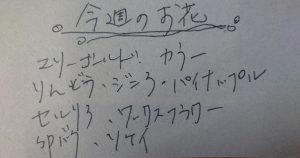 今週のお花
ユリーゴールド! カラー
りんどう・ジニア・パイナップル
セルリア、ワックスフラワー
SPバラ、ソケイ